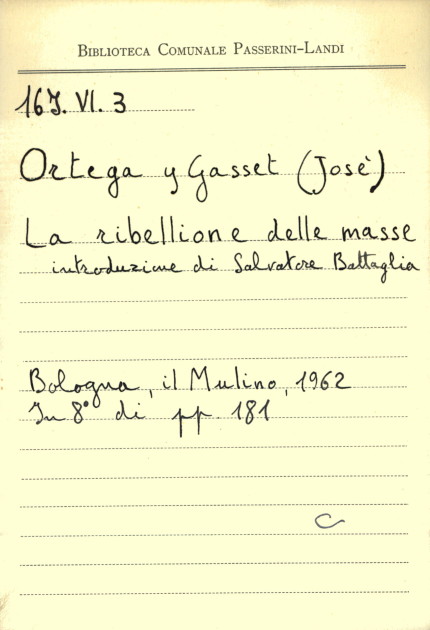 BIBLIOTECA COMUNALE PASSERINI-LANDI
167. VI. 3
Ortega y Gasset (Josè)
La ribellione delle masse
introduzione di Salvatore Battaglia
Bologna, il Mulino, 1962
In 8° di pp. 181
C